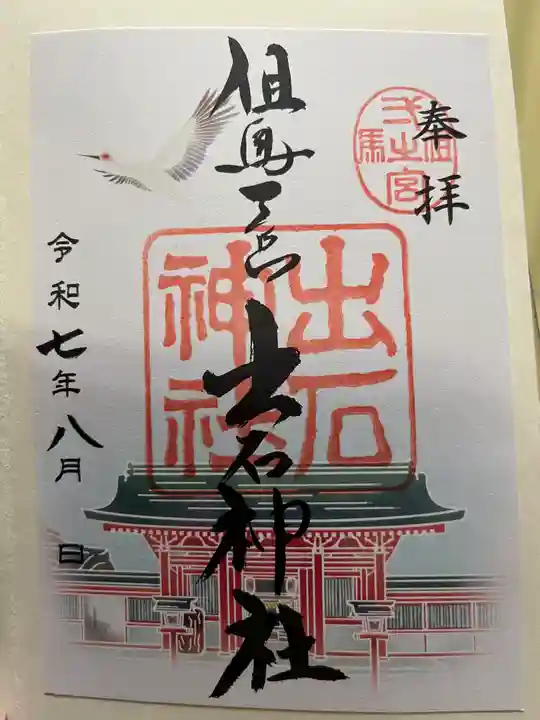 奉拝
但馬一宮
出石神社
出石神社
令和七年八月 日